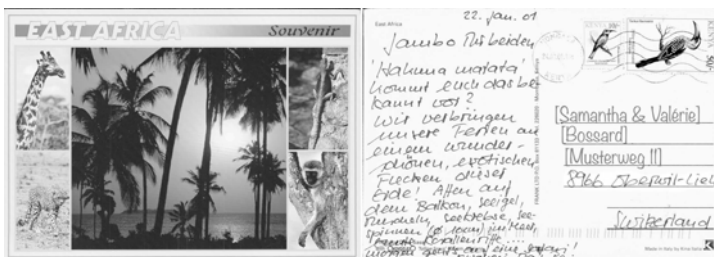 EAST AFRICA
Souvenir
East Africa
22. Jan. 01
Jambo Ihr beiden
'Hakuna matata'
kommt euch das be
kannt vor?
Wir verbringen
unsere Ferien an
einem wunder-
schönen, exotischen
Flecken dieser
Erde! Affen auf
dem Balkon, Seeigel,
Muscheln, Seekrebse, See-
spinnen (Ø 10cm) im Meer
Korallenriffe....
morgen geht's auf eine Safari!
KENYA
KENYA
50/-
[Samantha & Valérie]
[Bossard]
[Musterweg 11]
8966 Oberwil-Lieli
Switzerland
Made in Italy by Kina Italia